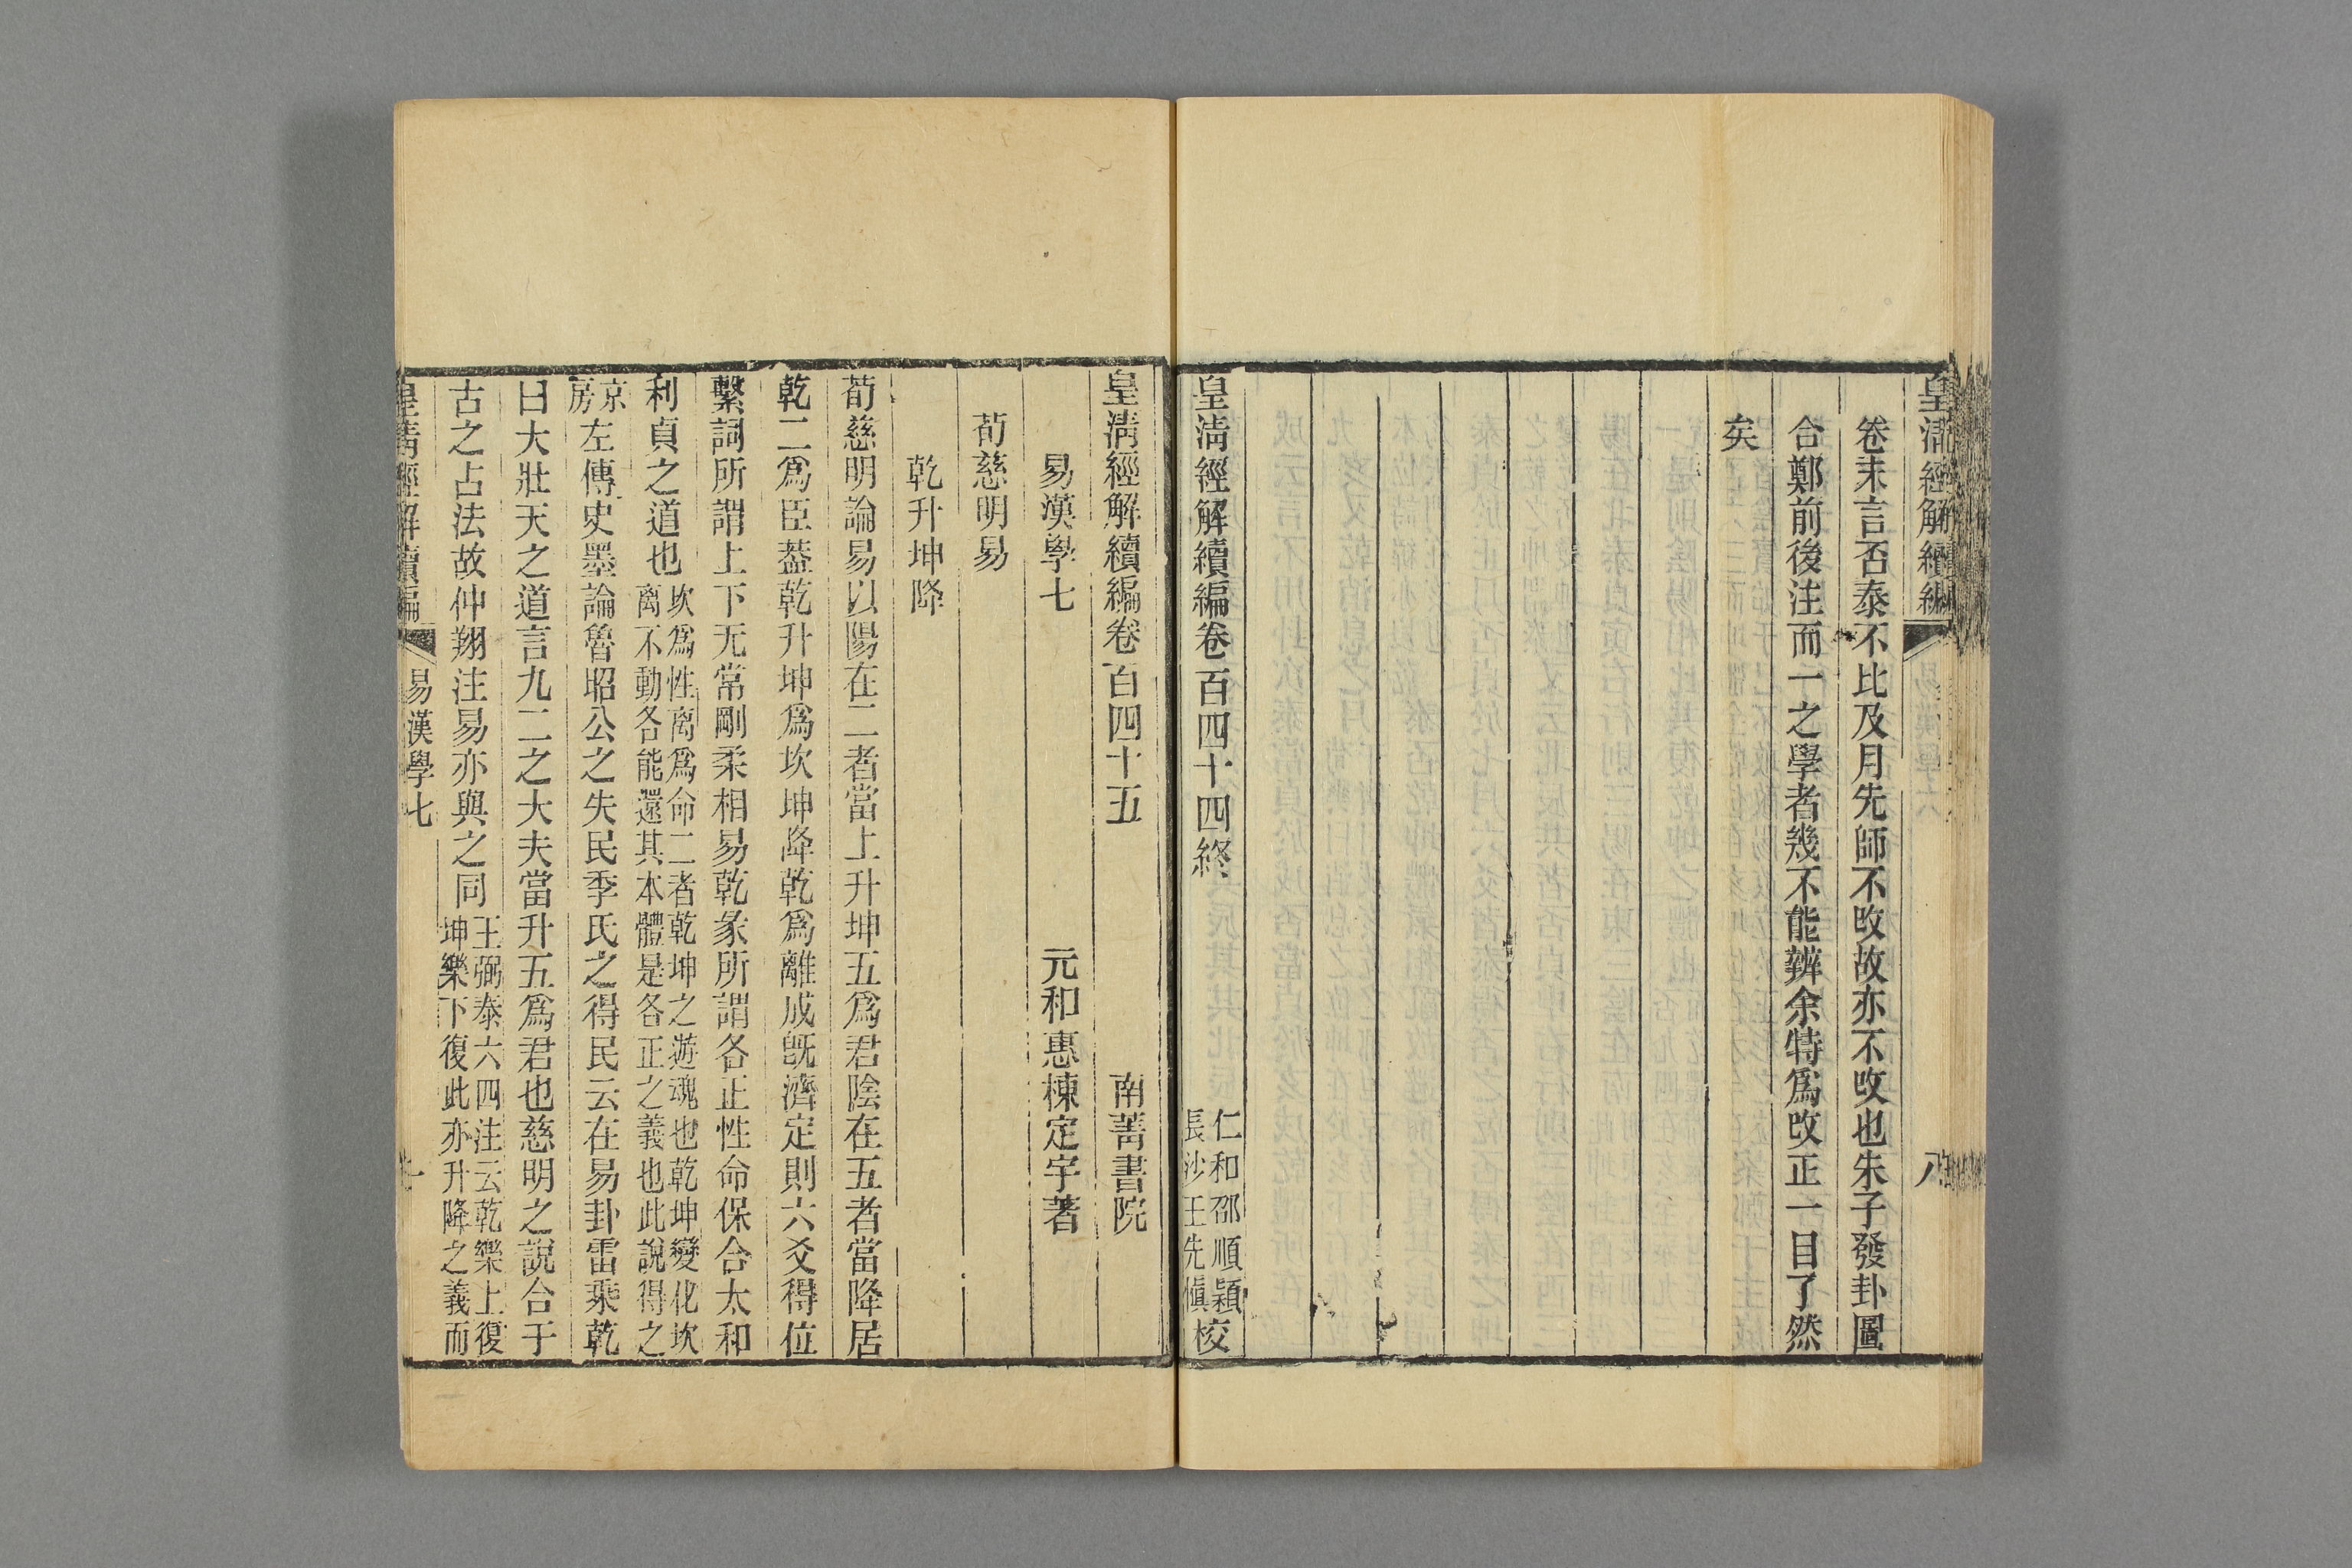 皇清經解續編
易漢學六
八
卷末言否泰不比及月先師不改故亦不改也朱子發卦圖
合鄭前後注而一之學者幾不能辨余特爲改正一目了然
矣
皇清經解續編卷百四十四終
仁和邵順穎
長沙王先愼
校
皇淸經解續編卷百四十五
南菁書院
易漢學七
元和惠棟定宇著
荀慈明易
乾升坤降
荀慈明論易以陽在二者當上升坤五爲君陰在五者當降居
乾二爲臣葢乾升坤爲坎坤降乾爲離成旣濟定則六爻得位
繫詞所謂上下无常剛柔相易乾彖所謂各正性命保合太和
利貞之道也
坎爲性离爲命二者乾坤之遊魂也乾坤變化坎
离不動各能還其本體是各正之義也此說得之
京
房
左傳史墨論魯昭公之失民季氏之得民云在易卦雷乘乾
曰大壯天之道言九二之大夫當升五爲君也慈明之說合于
古之占法故仲翔注易亦與之同
王弼泰六四注云乾樂上復
坤樂下復此亦升降之義而
皇清經解續編
易漢學七
一